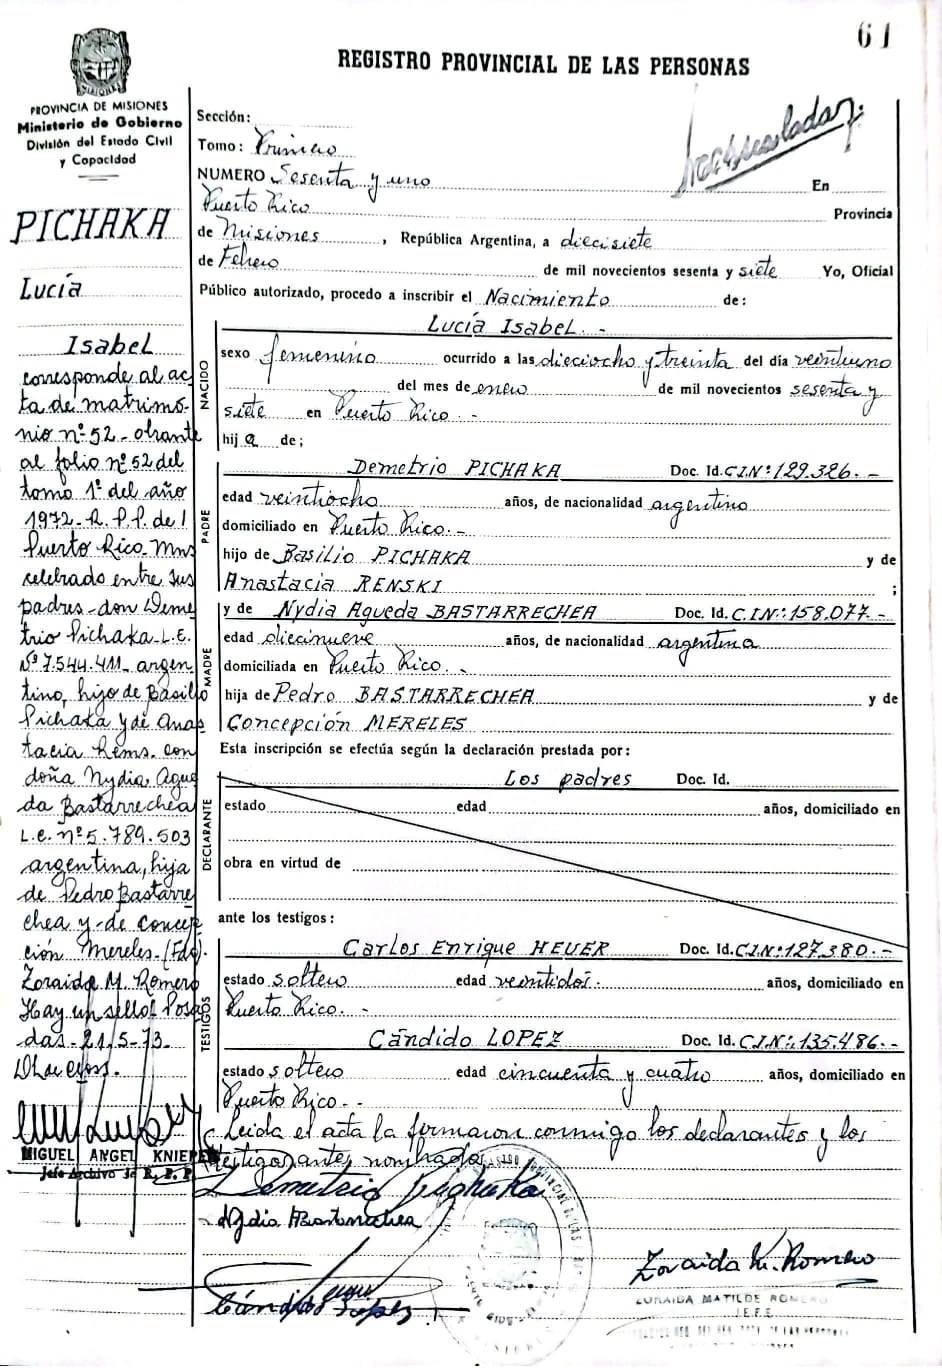 61
REGISTRO PROVINCIAL DE LAS PERSONAS
PROVINCIA DE MISIONES
Ministerio de Gobierno
División del Estado Civil
y Capacidad
PICHAKA
Lucía
Isabel
corresponde al ac
ta de matrimo-
nio nº 52 - obrante
al folio nº 52 del
tomo 1º del año
1972- R. P. P. de l
Puerto Rico- Mns
celebrado entre sus
padres - don Deme
trio Pichaka L.E.
Nº 7.544.411- argen
tino, hijo de Basilio
Pichaka y de Anas
tacia Rems. con
doña Nydia Ague
da Bastarrechea
L.C. nº 5.789.503
argentina, hija
de Pedro Bastarre
chea y de Concep
ción Mereles- (Fdo).
Zoraida M. Romero
Hay un sello! Posa
das - 21/5-73-
MIGUEL ANGEL KNIEPER
Jefe Archivo de R. P. P.
Sección:
Tomo: Primero
NUMERO Sesenta y uno En
Puerto Rico Provincia
de Misiones, República Argentina, a diecisiete
de Febrero de mil novecientos sesenta y siete Yo, Oficial
Público autorizado, procedo a inscribir el Nacimiento de:
NACIDO
Lucía Isabel. -
sexo femenino ocurrido a las dieciocho y treinta del día veintiuno
del mes de enero de mil novecientos sesenta y
siete en Puerto Rico. -
hija de;
PADRE
Demetrio PICHAKA Doc. Id. C.I.Nº: 129.326. -
edad veintiocho años, de nacionalidad argentino
domiciliado en Puerto Rico. -
hijo de Basilio PICHAKA y de
Anastacia RENSKI ;
MADRE
y de Nydia Agueda BASTARRECHEA Doc. Id. C.I.N.: 158.077. -
edad diecinueve años, de nacionalidad argentina
domiciliada en Puerto Rico. -
hija de Pedro BASTARRECHEA y de
Concepción MERELES
Esta inscripción se efectúa según la declaración prestada por:
DECLARANTE
Los padres Doc. Id.
estado edad años, domiciliado en
obra en virtud de
ante los testigos:
TESTIGOS
Carlos Enrique HEUER Doc. Id. C.I.N.: 127.380. -
estado soltero edad veintidós. años, domiciliado en
Puerto Rico. -
Cándido LOPEZ Doc. Id. C.I.N.: 135.486. -
estado soltero edad cincuenta y cuatro años, domiciliado en
Puerto Rico. -
Leida el acta la firmaron conmigo los declarantes y los
testigos antes nombrados
Demetrio Pichaka
Nydia Bastarrechea
Cándido Lopez
Zoraida M. Romero
ZORAIDA MATILDE ROMERO
JEFE